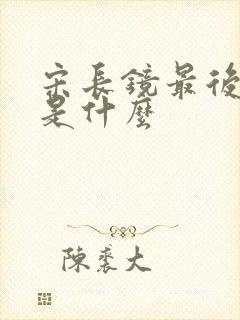 宋長鏡最後
是什麼
陳裘大